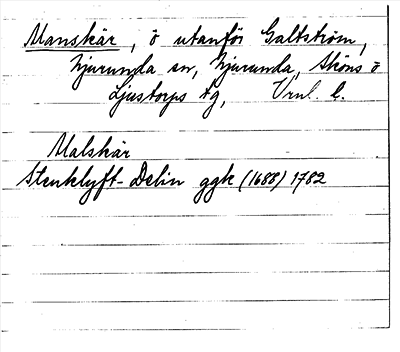 Manskär, ö utanför Galtström,
Njurunda sn, Njurunda, Sköns o
Ljustorps tg, Vrnl. l.
Malskär
Stenklyft-Delin ggk (1688) 1782